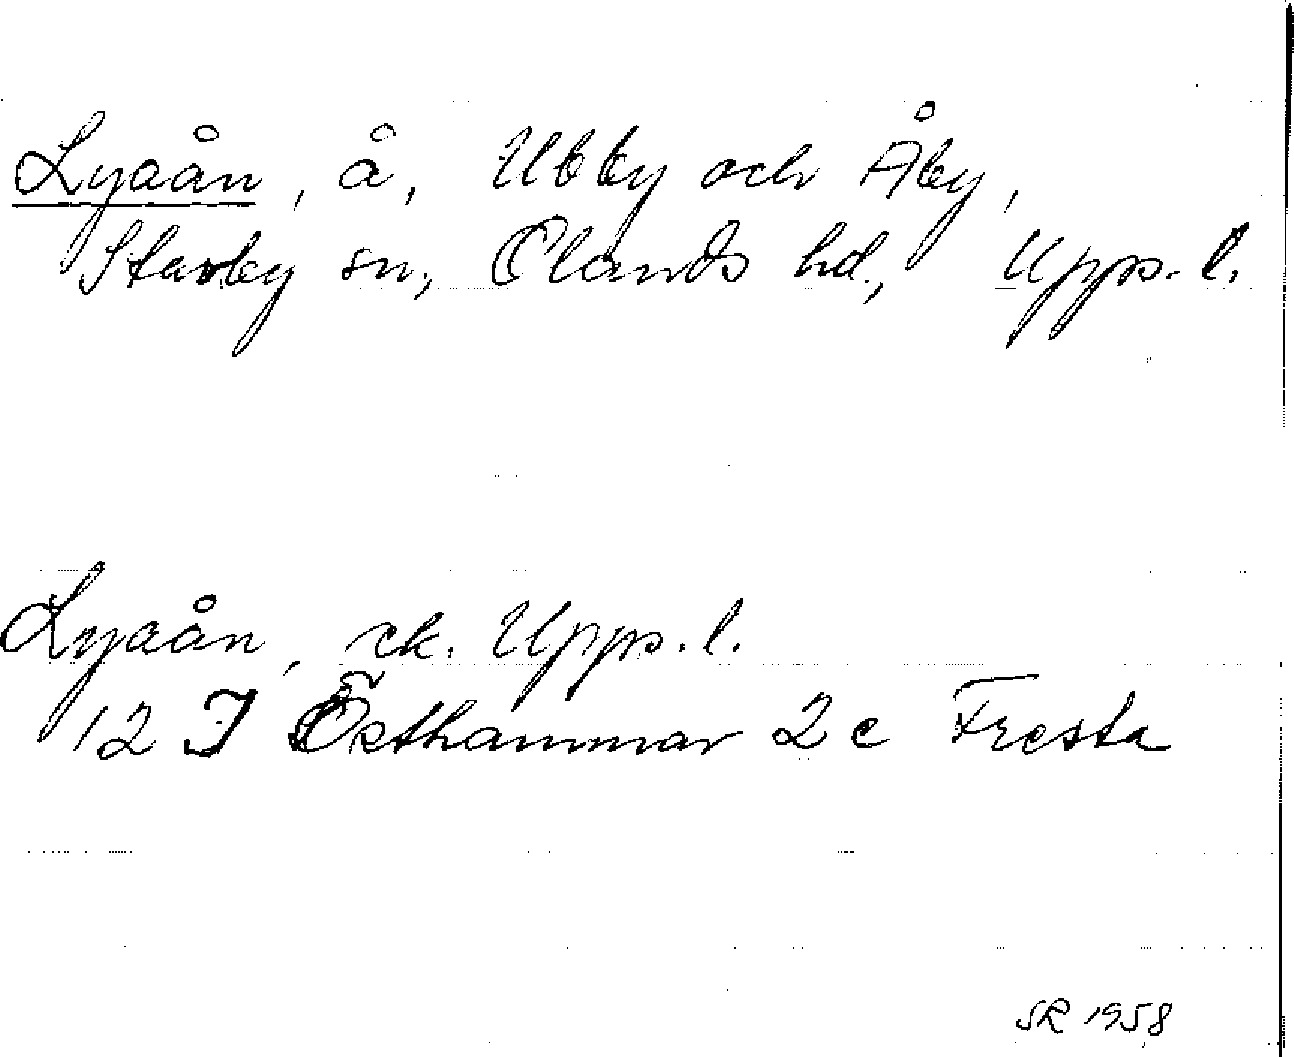 Lyaån, å, Ubby och Åby,
Stavby sn, Olands hd., Upps. l.
Lyaån, ek. Upps. l.
12 I Östhammar 2 c Fresta
SR 1958